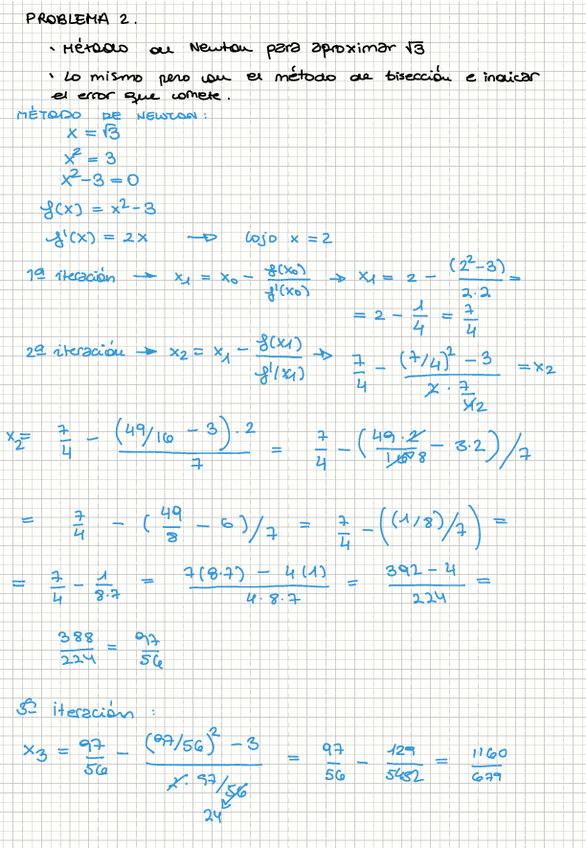 PROBLEMA 2.
· Método de Newton para aproximar √3
· Lo mismo pero con el método de bisección e indicar
el error que comete.
MÉTODO DE NEWTON:
x = √3
x² = 3
x² - 3 = 0
f(x) = x² - 3
f'(x) = 2x → cojo x = 2
1ª iteración → x₁ = x₀ - f(x₀)/f'(x₀) → x₁ = 2 - (2² - 3)/(2·2) =
= 2 - 1/4 = 7/4
2ª iteración → x₂ = x₁ - f(x₁)/f'(x₁) → 7/4 - ((7/4)² - 3)/(2 · 7/4 2) = x₂
x₂ = 7/4 - ((49/16 - 3) · 2)/7 = 7/4 - (49·2/16 8 - 3·2)/7
= 7/4 - (49/8 - 6)/7 = 7/4 - ((1/8)/7) =
= 7/4 - 1/(8·7) = (7(8·7) - 4(1))/(4·8·7) = (392 - 4)/224 =
388/224 = 97/56
3ª iteración :
x₃ = 97/56 - ((97/56)² - 3)/(2 · 97/56) = 97/56 - 129/5432 = 1160/679
24